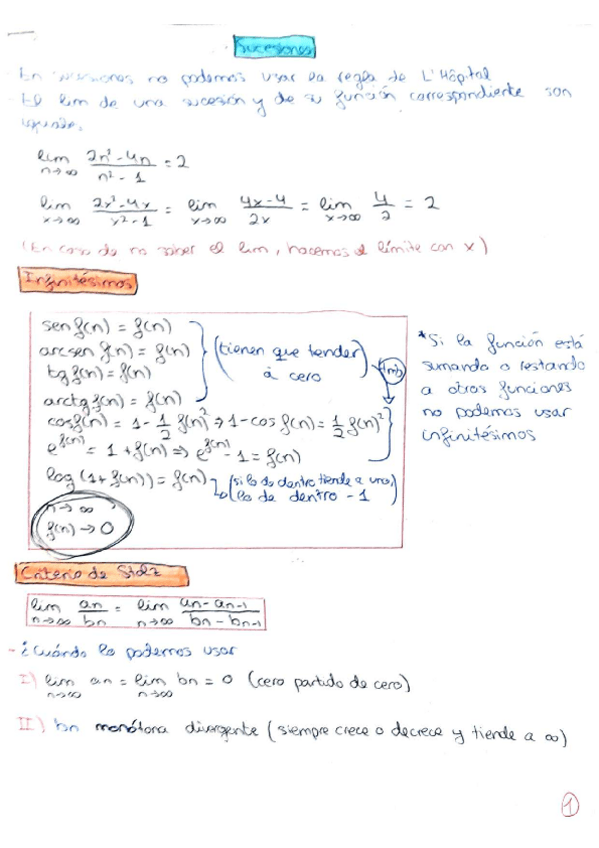 Sucesiones
- En sucesiones no podemos usar la regla de L'Hôpital
- El lim de una sucesión y de su función correspondiente son
iguales.
lim n→∞ (2n²-4n)/(n²-1) = 2
lim x→∞ (2x²-4x)/(x²-1) = lim x→∞ (4x-4)/(2x) = lim x→∞ 4/2 = 2
(En caso de no saber el lim, hacemos el límite con x)
Infinitésimos
sen f(n) = f(n)
arcsen f(n) = f(n)
tg f(n) = f(n)
arctg f(n) = f(n)
(tienen que tender
a cero
cos f(n) = 1 - 1/2 f(n)² ⇒ 1 - cos f(n) = 1/2 f(n)²
e^f(n) = 1 + f(n) ⇒ e^f(n) - 1 = f(n)
log (1 + f(n)) = f(n)
(si lo de dentro tiende a uno,
(lo de dentro - 1
n→∞
f(n)→0
*Si la función está
sumando o restando
a otras funciones
no podemos usar
infinitésimos
Criterio de Stolz
lim n→∞ an/bn = lim n→∞ (an - an-1)/(bn - bn-1)
- ¿Cuándo lo podemos usar
I) lim n→∞ an = lim n→∞ bn = 0 (cero partido de cero)
II) bn monótona divergente (siempre crece o decrece y tiende a ∞)
1